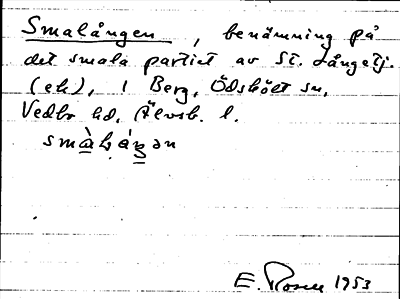 Smalången, benämning på
det smala partiet av St. Långetj.
(ek), i Berg, Ödsköлt sn,
Vedbo hd, Älvsb. l.
E. Rosen 1953